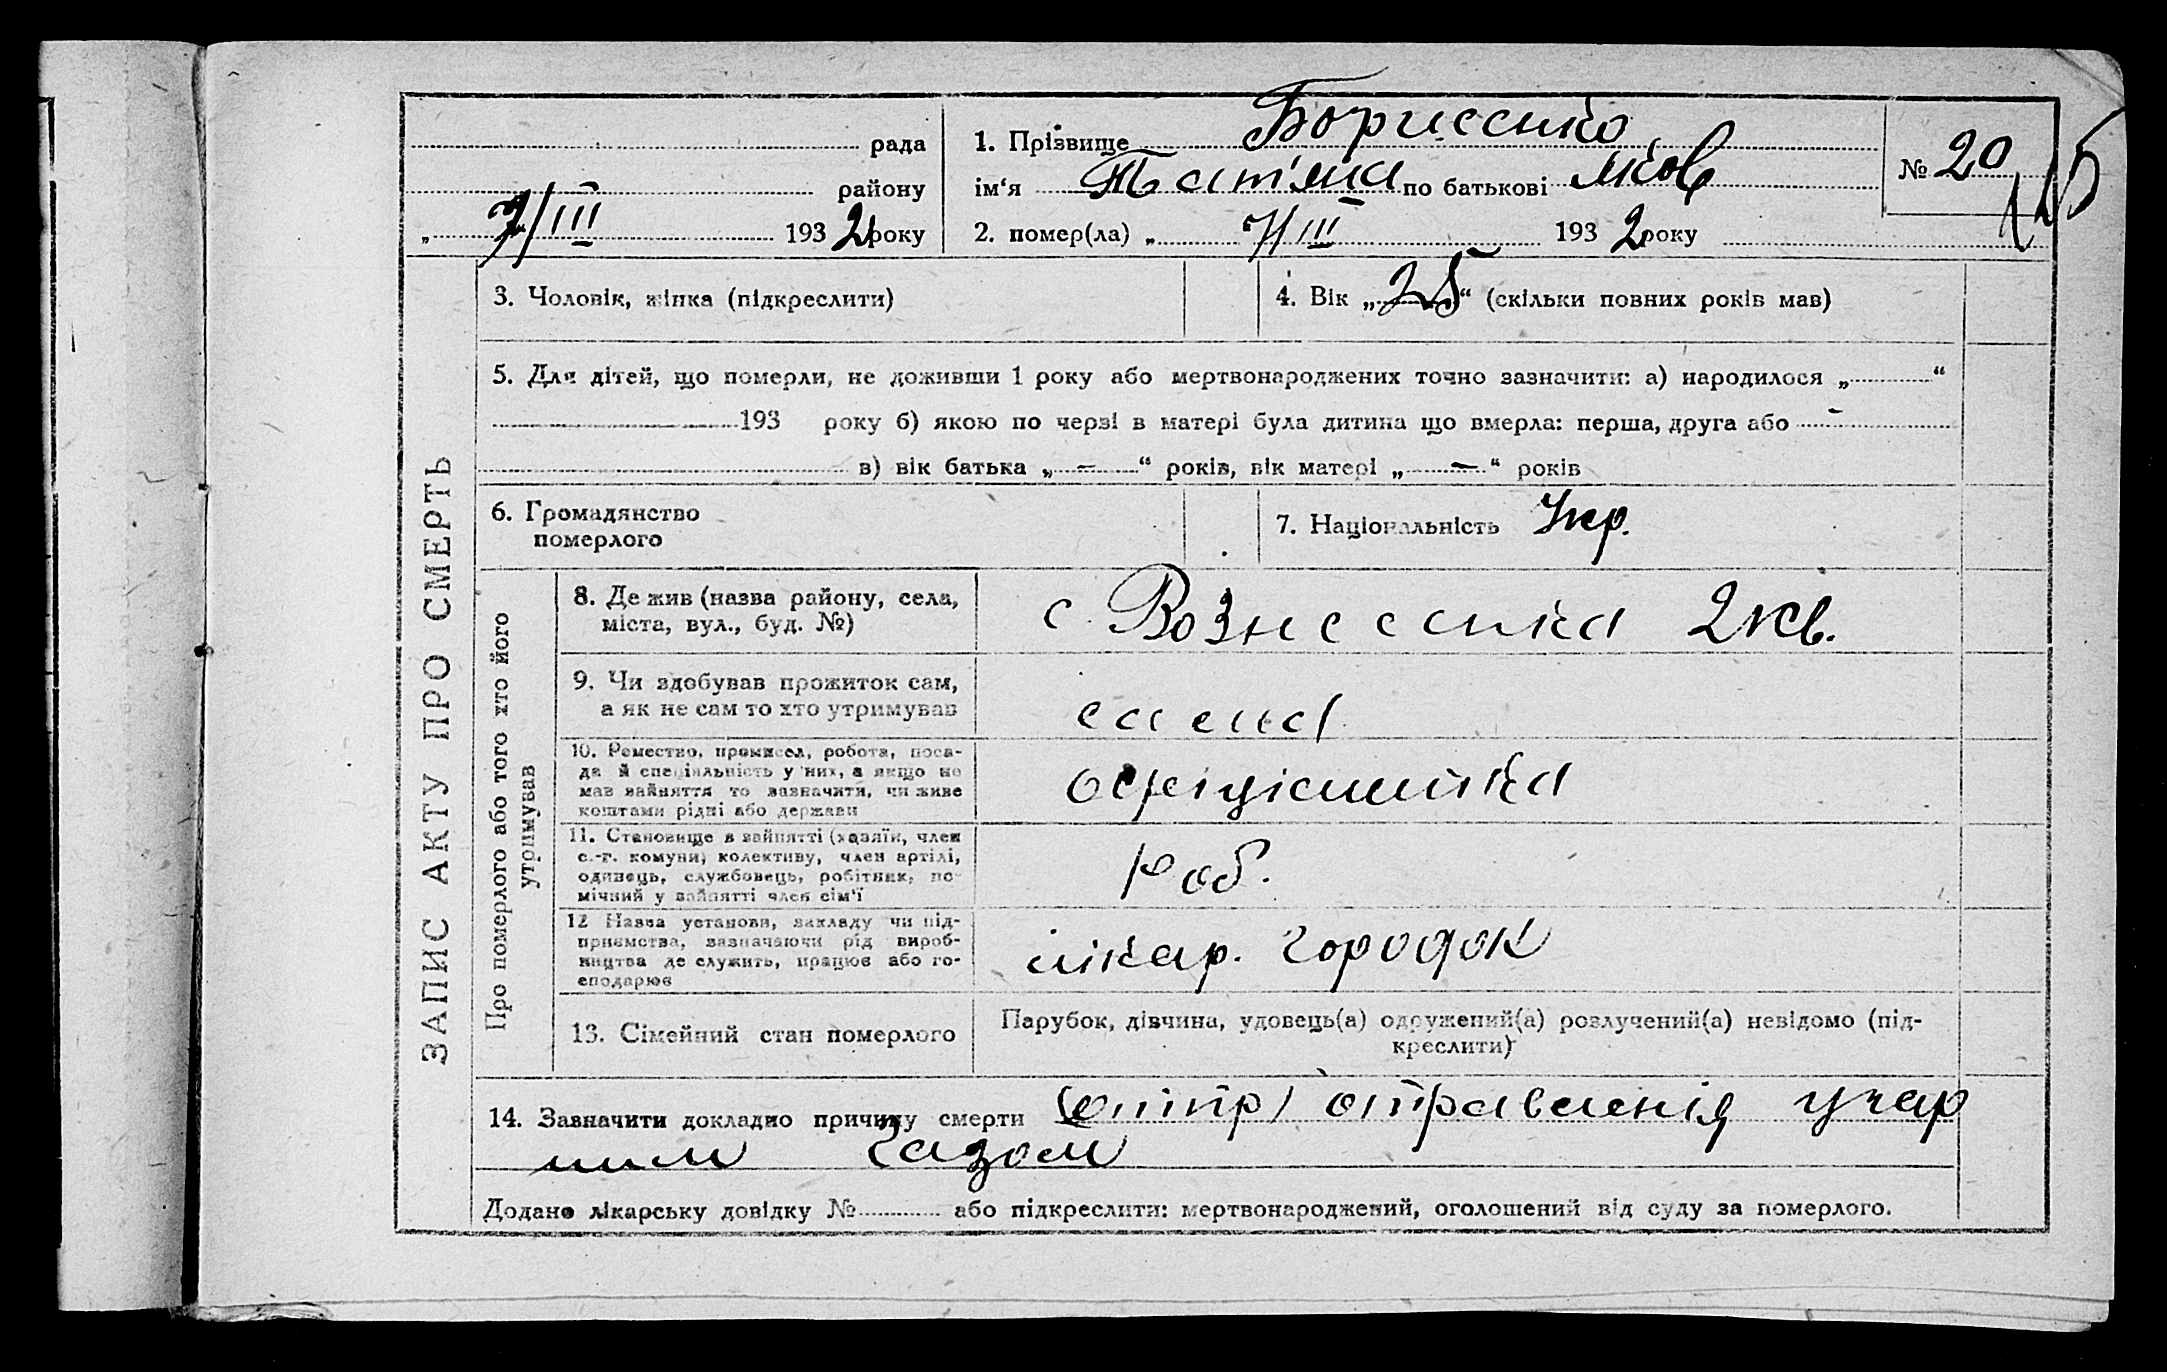 рада
району
„ 7/III 1932 року
1. Прізвище Борисенко
ім‘я Татьяна по батькові Яков
2. помер(ла) „ 7/III 1932 року
№ 20
ЗАПИС АКТУ ПРО СМЕРТЬ
3. Чоловік, жінка (підкреслити)
4. Вік „25“ (скільки повних років мав)
5. Для дітей, що померли, не доживши 1 року або мертвонароджених точно зазначити: а) народилося „ “
193 року б) якою по черзі в матері була дитина що вмерла: перша, друга або -
в) вік батька „ – “ років, вік матері „ – “ років
6. Громадянство
померлого
7. Національність Укр.
Про померлого або того хто його
утримував
8. Де жив (назва району, села,
міста, вул., буд. №)
с. Вознесенка 2 кв.
9. Чи здобував прожиток сам,
а як не сам то хто утримував
сама
10. Ремество, промисел, робота, поса-
да й спеціяльність у них, а якщо не
мав зайняття то зазначити, чи живе
коштами рідні або держави
офиціантка
11. Становище в зайнятті (хазяїн, член
с.-г. комуни, колективу, член артілі,
одинець, службовець, робітник, по-
мічний у зайнятті член сім'ї
роб.
12 Назва установи, закладу чи під-
приємства, зазначаючи рід вироб-
ництва де служить, працює або го-
сподарює
лікар. городок
13. Сімейний стан померлого
Парубок, дівчина, удовець(а) одружений(а) розлучений(а) невідомо (під-
креслити)
14. Зазначити докладно причину смерти отравленія угар
ним газом
Додано лікарську довідку № або підкреслити: мертвонароджений, оголошений від суду за померлого.